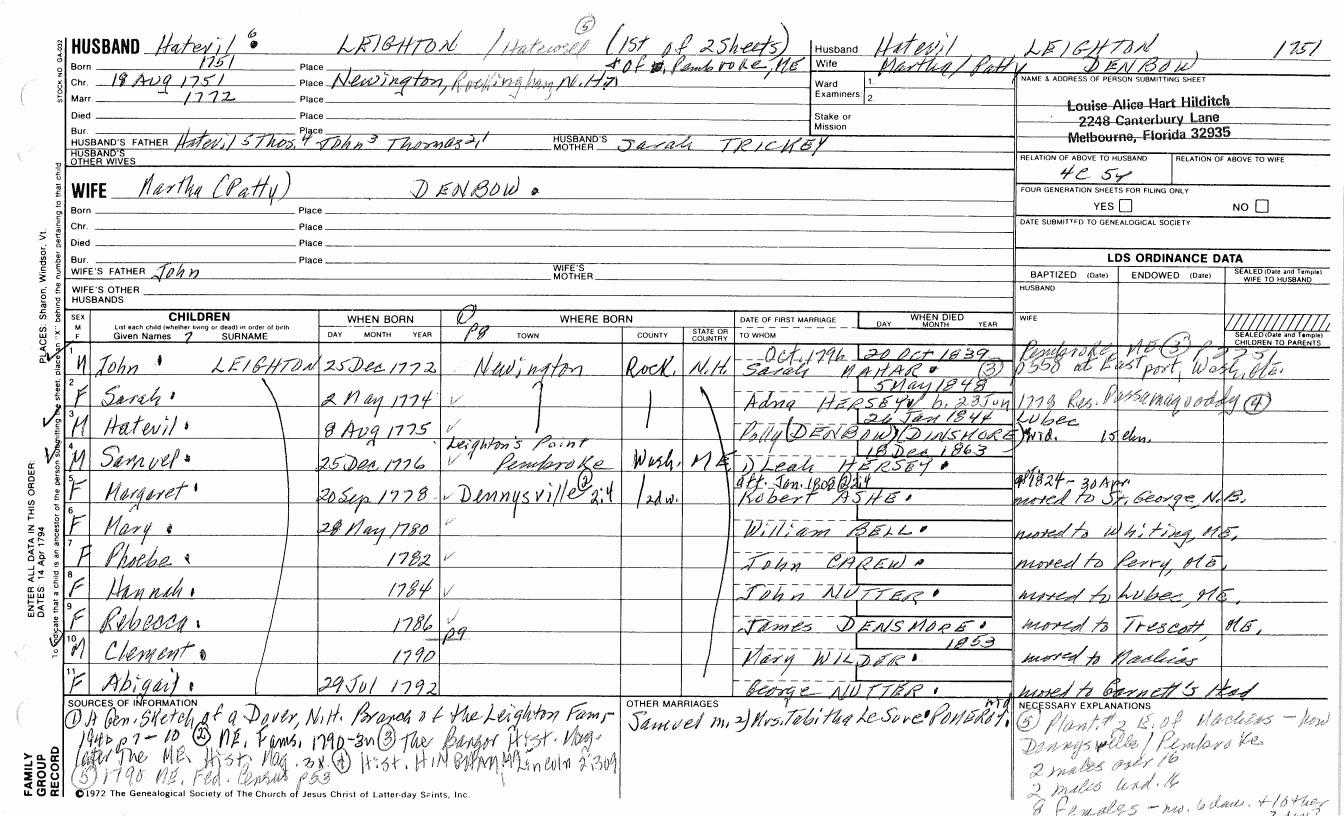 ⑤
HUSBAND Hatevil 6 LEIGHTON / Hatewell (1st of 2 Sheets)
Born 1751 Place + of Pembroke, ME
Chr. 18 AUG 1751 Place Newington, Rockingham, N.H.
Marr. 1772 Place
Died Place
Bur. Place
HUSBAND'S FATHER Hatevil 5 Thos. 4 John 3 Thomas 2, 1 HUSBAND'S MOTHER Sarah TRICKEY
HUSBAND'S OTHER WIVES
Husband Hatevil LEIGHTON 1751
Wife Martha / Patty DENBOW
Ward
Examiners 1. 2.
Stake or Mission
NAME & ADDRESS OF PERSON SUBMITTING SHEET
Louise Alice Hart Hilditch
2248 Canterbury Lane
Melbourne, Florida 32935
RELATION OF ABOVE TO HUSBAND RELATION OF ABOVE TO WIFE
4C 5r
FOUR GENERATION SHEETS FOR FILING ONLY
YES NO
DATE SUBMITTED TO GENEALOGICAL SOCIETY
WIFE Martha (Patty) DENBOW
Born Place
Chr. Place
Died Place
Bur. Place
WIFE'S FATHER John WIFE'S MOTHER
WIFE'S OTHER HUSBANDS
LDS ORDINANCE DATA
BAPTIZED (Date) ENDOWED (Date) SEALED (Date and Temple) WIFE TO HUSBAND
HUSBAND
WIFE
SEALED (Date and Temple) CHILDREN TO PARENTS
SEX M F CHILDREN WHEN BORN WHERE BORN DATE OF FIRST MARRIAGE WHEN DIED
List each child (whether living or dead) in order of birth
Given Names 7 SURNAME DAY MONTH YEAR p8 TOWN COUNTY STATE OR COUNTRY TO WHOM DAY MONTH YEAR
1 M John LEIGHTON 25 Dec 1772 Newington Rock. N.H. Oct. 1796 Sarah MAHAR 20 Oct 1839 Pembroke ME ③ p 558 at Eastport, Wash, Me.
2 F Sarah 2 May 1774 Adna HERSEY b. 23 Jun 1778 5 May 1848 Res. Passamaquoddy ④
3 M Hatevil 8 Aug 1775 Polly (DENBOW) (DINSMORE) 24 Jan 1844 Lubec wid. 15 chn.
4 M Samuel 25 Dec 1776 Leighton's Point Pembroke Wash. ME 1) Leah HERSEY 18 Dec 1863
5 F Margaret 20 Sep 1778 Dennysville ② 2:4 aft. Jan. 1808 ② 2:4 Robert ASHE aft 1824 - 30 Apr moved to St. George, N.B.
6 F Mary 28 May 1780 William BELL moved to Whiting, ME.
7 F Phoebe 1782 John CAREW moved to Perry, ME.
8 F Hannah 1784 John NUTTER moved to Lubec, ME.
9 F Rebecca 1786 James DENSMORE moved to Trescott, ME.
10 M Clement 1790 p9 Mary WILDER 1853 moved to Machias
11 F Abigail 29 Jul 1792 George NUTTER moved to Garnett's Head
SOURCES OF INFORMATION
① A Gen. Sketch of a Dover, N.H. Branch of the Leighton Fam-
1940 p7-10 ② ME. Fams. 1790-3 ③ The Bangor Hist. Mag.
later The ME. Hist. Mag. ④ Hist. HINGHAM, MA Lincoln 2:309
⑤ 1790 ME. Fed. Census p53
OTHER MARRIAGES
Samuel m. 2) Mrs. Tabitha LeSure POMEROY, wid
NECESSARY EXPLANATIONS
⑤ Plant. #2 E. of Machias - now
Dennysville / Pembroke
2 males over 16
2 males und. 16
8 females - mo. 6 daus. + 1 other
©1972 The Genealogical Society of The Church of Jesus Christ of Latter-day Saints, Inc.
FAMILY GROUP RECORD
ENTER ALL DATA IN THIS ORDER:
DATES 14 Apr 1794
PLACES: Sharon, Windsor, Vt.
To indicate that a child is an ancestor of the person submitting the sheet, place an "X" behind the number pertaining to that child
STOCK NO. GSA-032